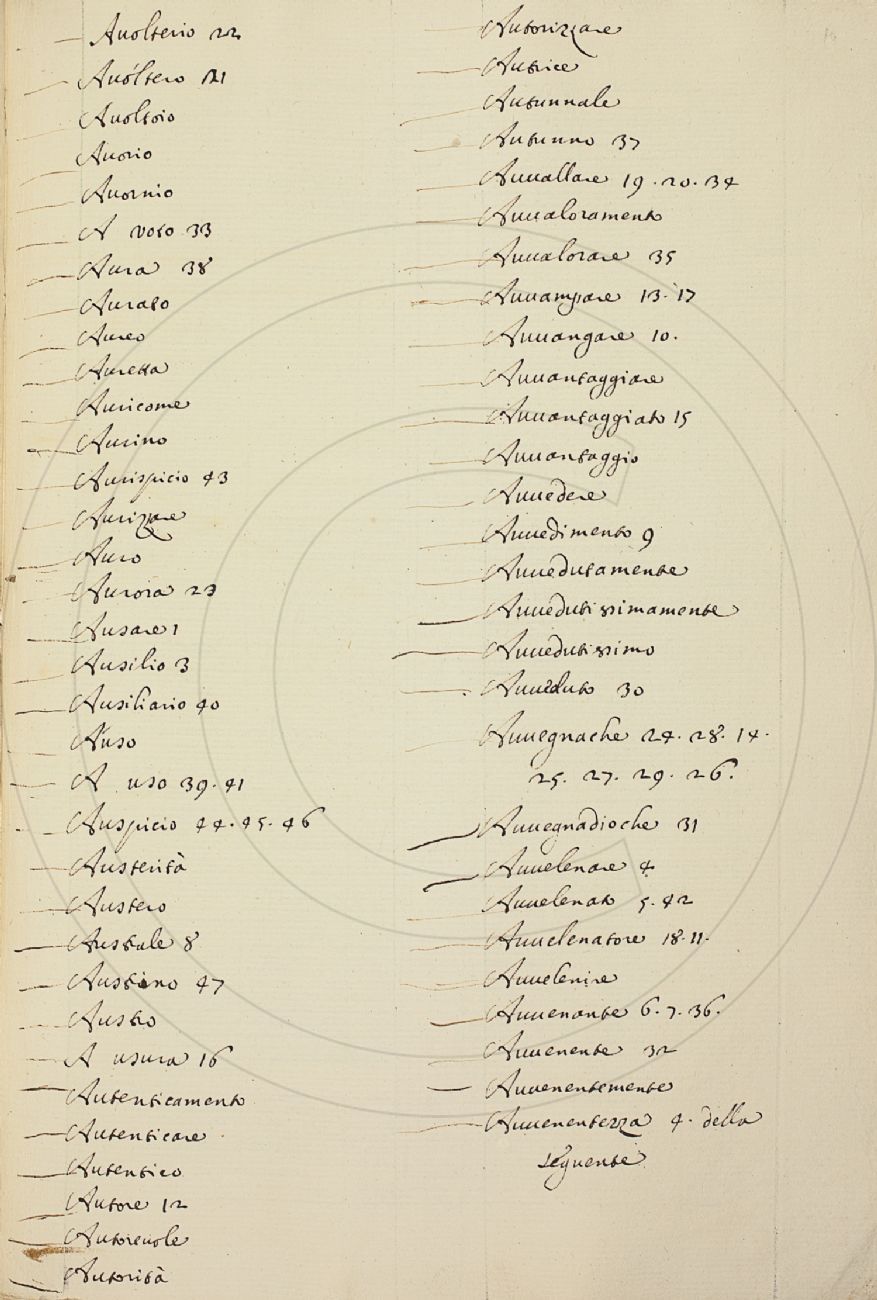 Auolterio 22
Auóltero 21
Auoltoio
Auorio
Auornio
A voto 33
Aura 38
Aurato
Aureo
Auretta
Auricome
Aurino
Aurispicio 43
Aurizzare
Auro
Aurora 23
Ausare 1
Ausilio 3
Ausiliario 40
Auso
A uso 39. 41
Auspicio 44. 45. 46
Austerità
Austero
Australe 8
Austrino 47
Austro
A usura 16
Autenticamento
Autenticare
Autentico
Autore 12
Autoreuole
Autorità
Autorizzare
Autrice
Autunnale
Autunno 37
Auuallare 19. 20. 34
Auualoramento
Auualorare 35
Auuampare 13. 17
Auuangare 10.
Auuantaggiare
Auuantaggiato 15
Auuantaggio
Auuedere
Auuedimento 9
Auuedutamente
Auuedutissimamente
Auuedutissimo
Auueduto 30
Auuegnache 24. 28. 14.
25. 27. 29. 26.
Auuegnadioche 31
Auuelenare 4
Auuelenato 5. 42
Auuelenatore 18. 11.
Auuelenire
Auuenante 6. 7. 36.
Auuenente 32
Auuenentemente
Auuenentezza 4. della
seguente